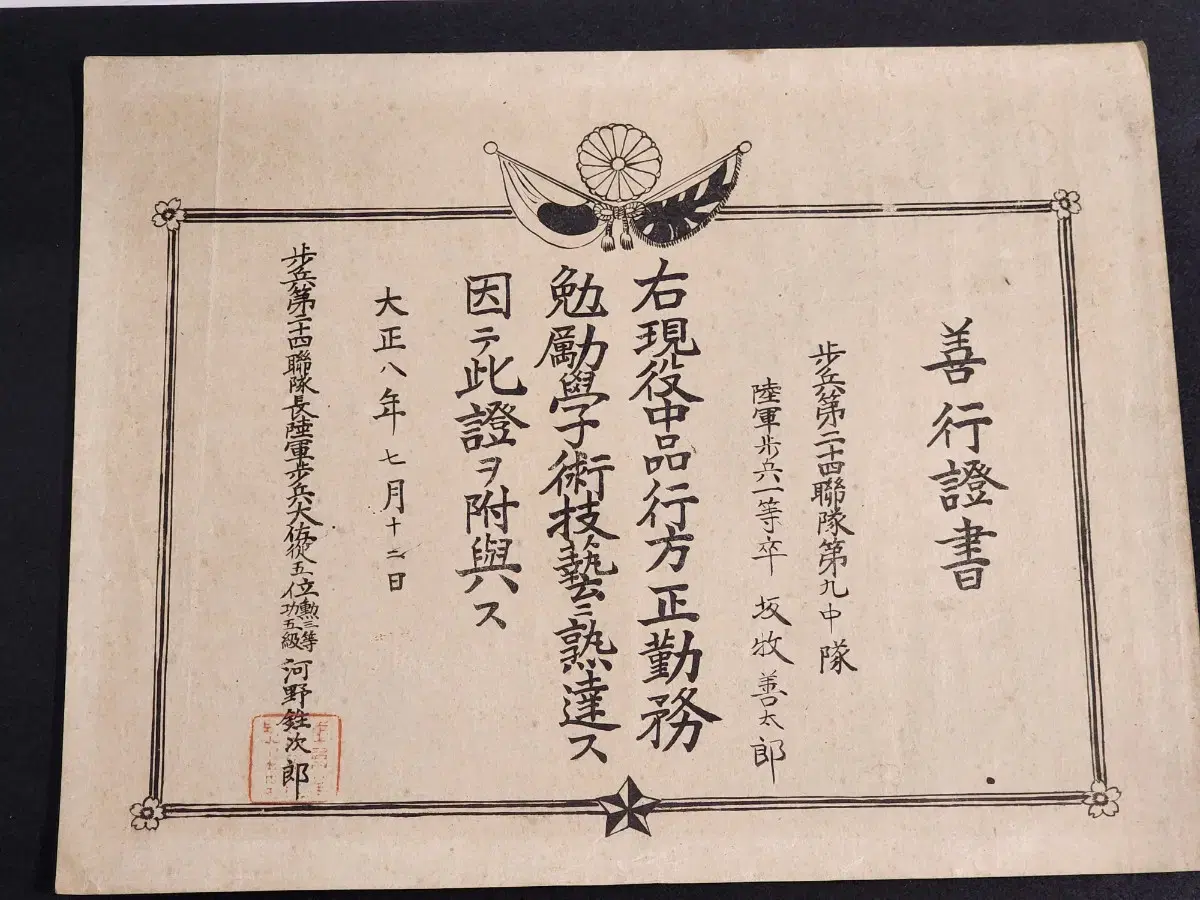 善行證書
步兵第二十四聯隊第九中隊
陸軍步兵一等卒 坂牧善太郎
右現役中品行方正勤務
勉勵學術技藝ニ熟達ス
因テ此證ヲ附與ス
大正八年七月十二日
步兵第二十四聯隊長陸軍步兵大佐從五位勲三等功五級河野銓次郎